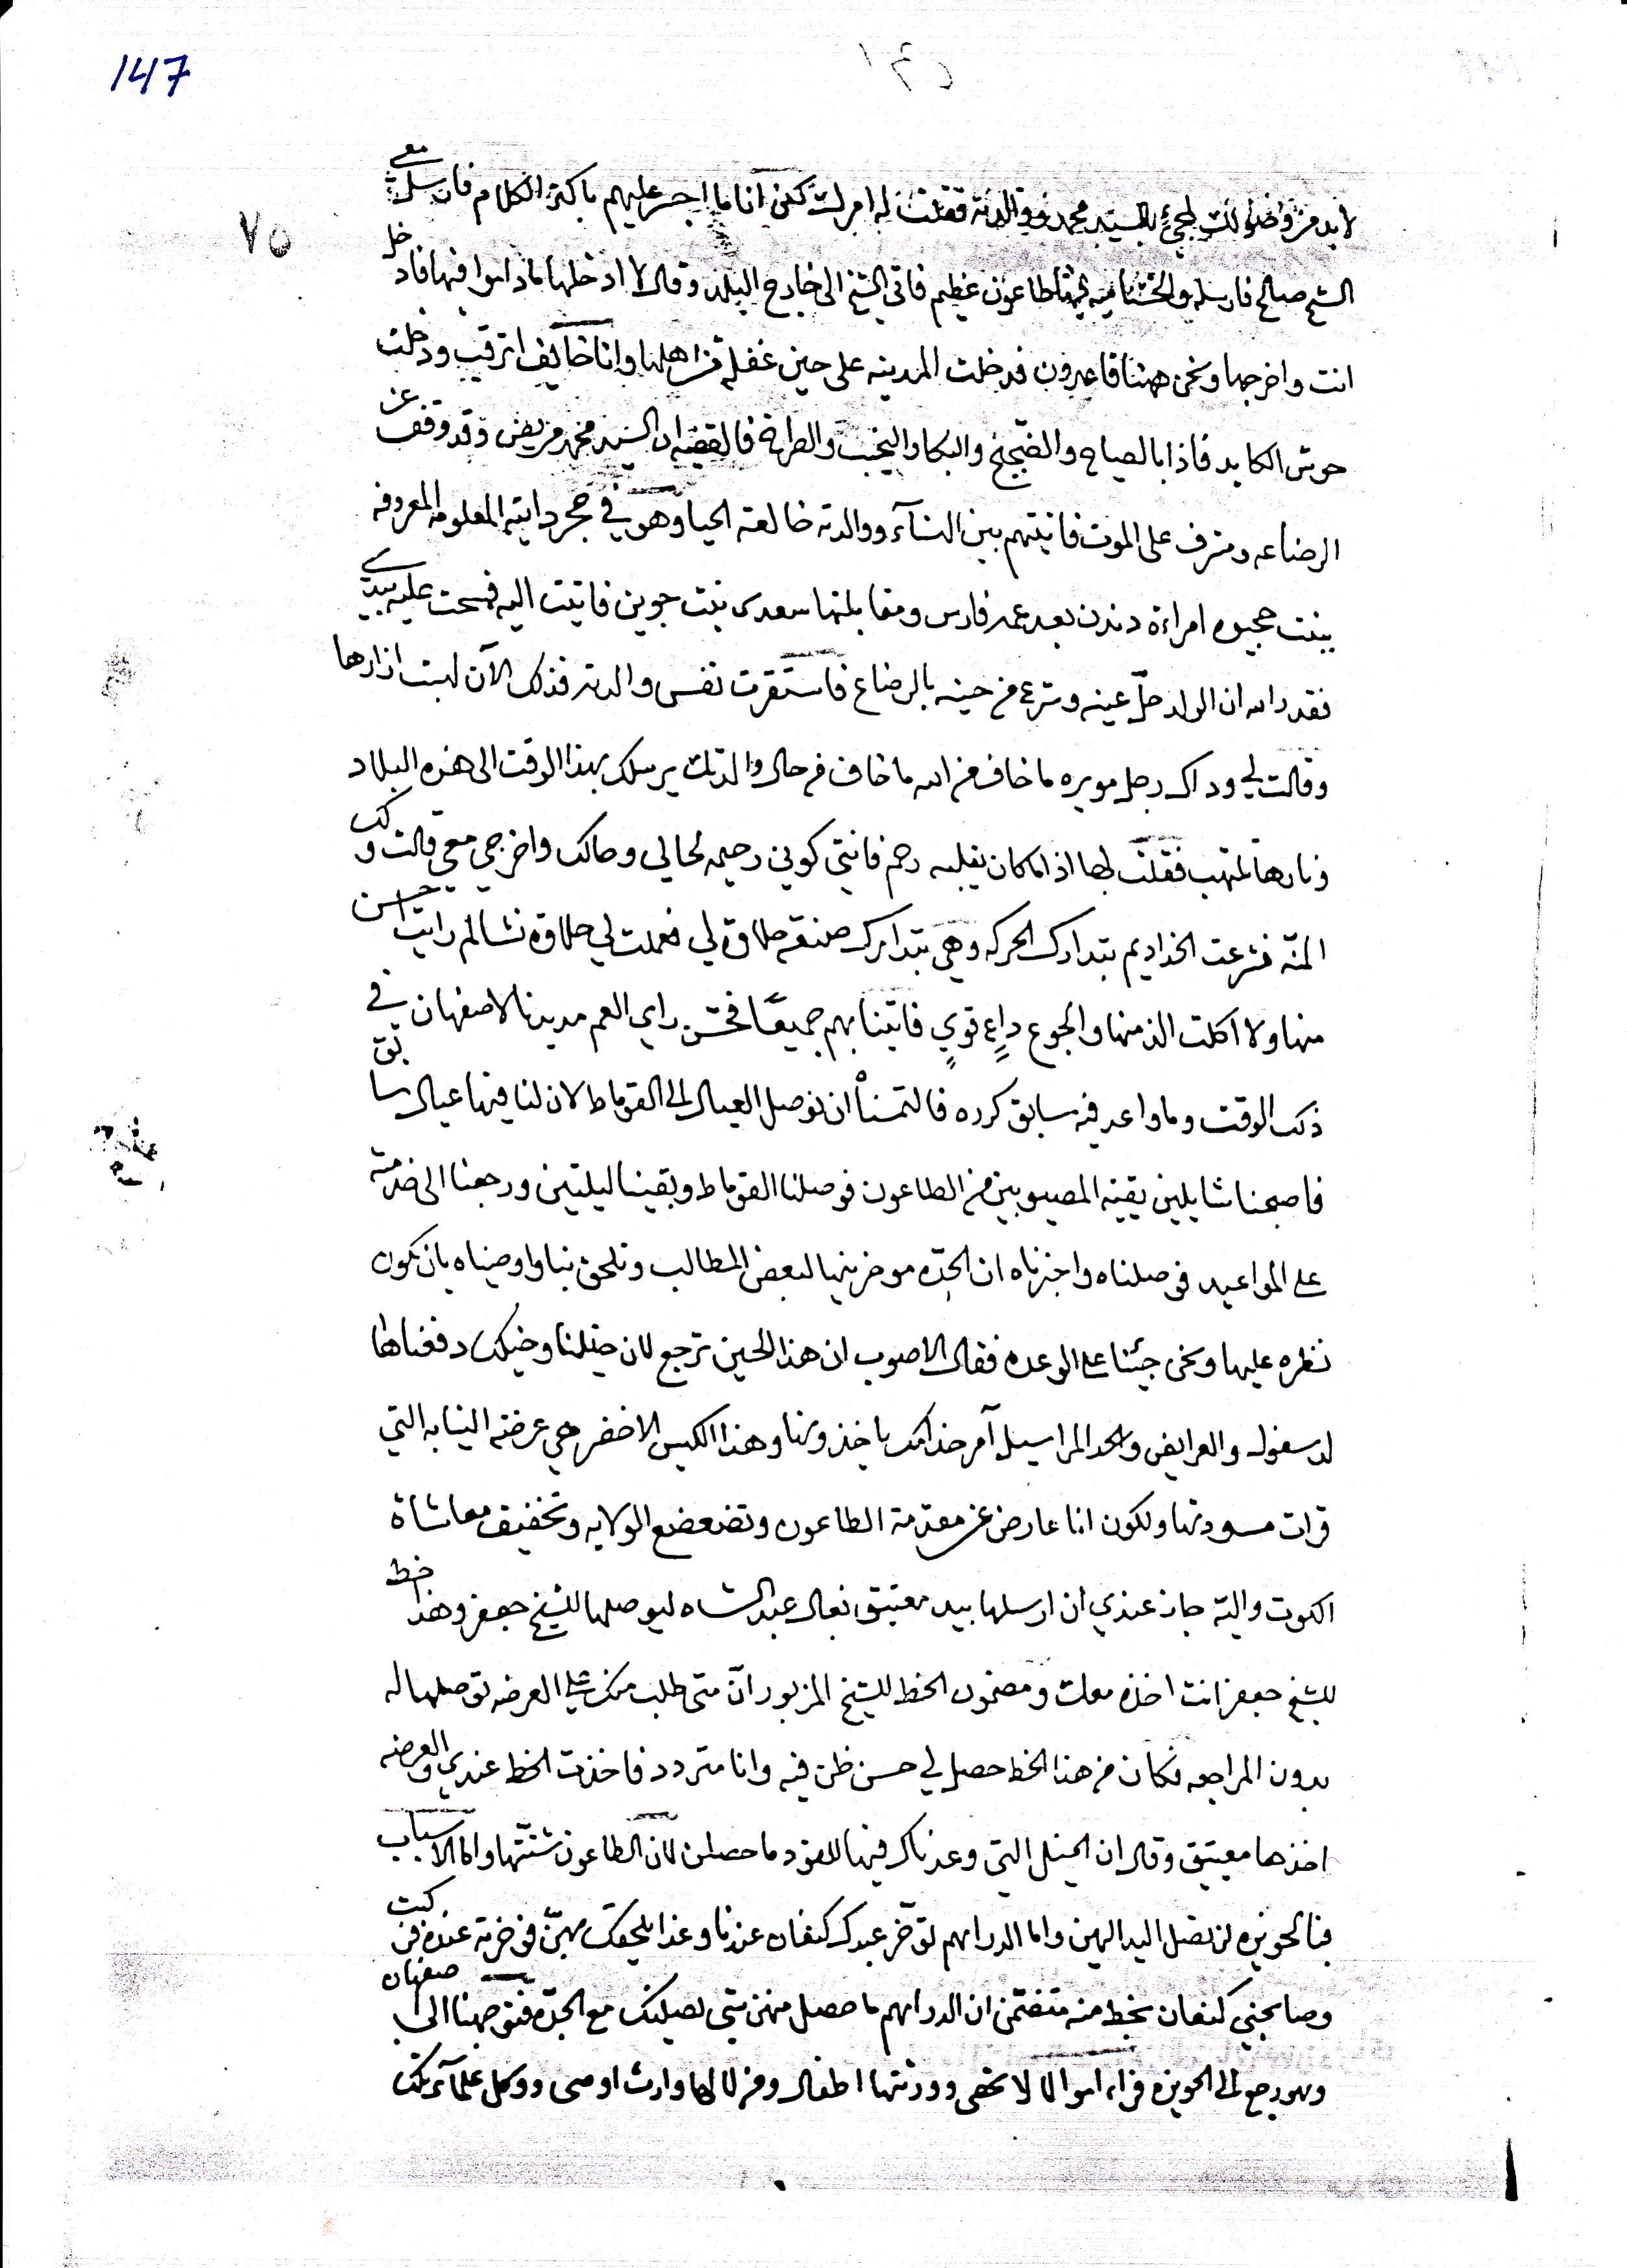 147
٧٥
لابد من وصولك لمجيئ بالسيد محمد ووالدته فقلت له امرك لكن انا ما اجسر عليهم باكثر الكلام فان سلت معي
الشيخ صالح فارسله والخشنامية فيها طاعون عظيم فاتي الشيخ الى خارج البلد وقال لا ادخلها ماداموا فيها فادخل
انت واخرجها ونحن ههنا قاعدون فدخلت المدينه على حين غفلة من اهلها وانا خايف اترقب ودخلت
حوش الكابد فاذا بالصياح والضجيج والبكا والنحيب والطراة فالقضيه ان السيد محمد مريض وقد وقف عن
الرضاعه ومشرف على الموت فاتيتهم بين النسآء ووالدته خالعة الحيا وهو في حجر دايته المعلومه المعروفه
بنت حجيوه امراءة دندن بعد عمه فارس ومقابلتها سعدى بنت جوين فاتيت اليه فمسحت عليه بيدي
فقدر الله ان الولد حلّ عينه وشرع من حينه بالرضاع فاستقرت نفس والدته فذلك الآن لبست ازارها
وقالت لي وداك رجل مويره ما خاف من الله ما خاف من حال والدتك يرسلك بهذا الوقت الى هذه البلاد
ونارها تلتهب فقلت لها اذا ما كان بقلبه رحم فانتي كوني رحيمه لحالي وحالك واخرجي معي قالت ولك
المنّه فشرعت الخداديم بتدارك الحركه وهي بتدارك صنعة حلاوة لي فعملت لي حلاوة نشا لم رايت احسن
منها ولا اكلت الذ منها والجوع داعٍ قويٍ فاتينا بهم جميعًا فحسن راي العم مديدنا لاصفهان في
ذلك الوقت وما واعد فيه سابق كرده فالتمسنا ان نوصل العيال الى القوماط لان لنا فيها عيال سابق
فاصبحنا شايلين بقية المصيوبين من الطاعون فوصلنا القوماط وبقينا ليلتين ورجعنا الى خدمته
على المواعيد فوصلناه واخبرناه ان الجدّه موخرينها لبعض المطالب وتلحق بنا واوصيناه بان يكون
نظره عليها ونحن جيئنا على الوعده فقال الاصوب ان هذا الحين ترجع لان خيلنا وخيلك دفعناها
لدسفول والعرايض واحد المراسيل آمر خدامك ياخذونها وهذا الكيس الاخضر هي عرضة النيابه التي
قرات مسودتها ولكون انا عارض عن مقدمة الطاعون وتضعضع الولايه وتخفيف معاشاة
الكوت واليه جاز عندي ان ارسلها بيد معيتيق نعال عبد الشاه ليوصلها للشيخ جعفر وهذا خط
للشيخ جعفر انت اخذه معك ومضمون الخط للشيخ المزبور انّ متى طلب منك علي العرضه توصلها له
بدون المراجعه فكان من هذا الخط حصل لي حسن ظن فيه وانا متردد فاخذت الخط عندي والعرضه
اخذها معيتيق وقال ان الخيل التي وعدناك فيها للقود ما حصلن لان الطاعون شتّتها واما الاسباب
فبالحويزه لن تصل اليد اليهن واما الدراهم توخّر عبدك كنعان عندنا وغدا يلحقك بهنّ فوخرته عنده فركبت
وصابحني كنعان بخط منه متضمن ان الدراهم ما حصل منهن شي نصيلنك مع الجدّه فتوجهنا الى اصفهان
وهو رجع الى الحويزه فراء اموالا لا تحصى وورثتها اطفال ومن لا لها وارث اوصى ووكل علمآء تلك